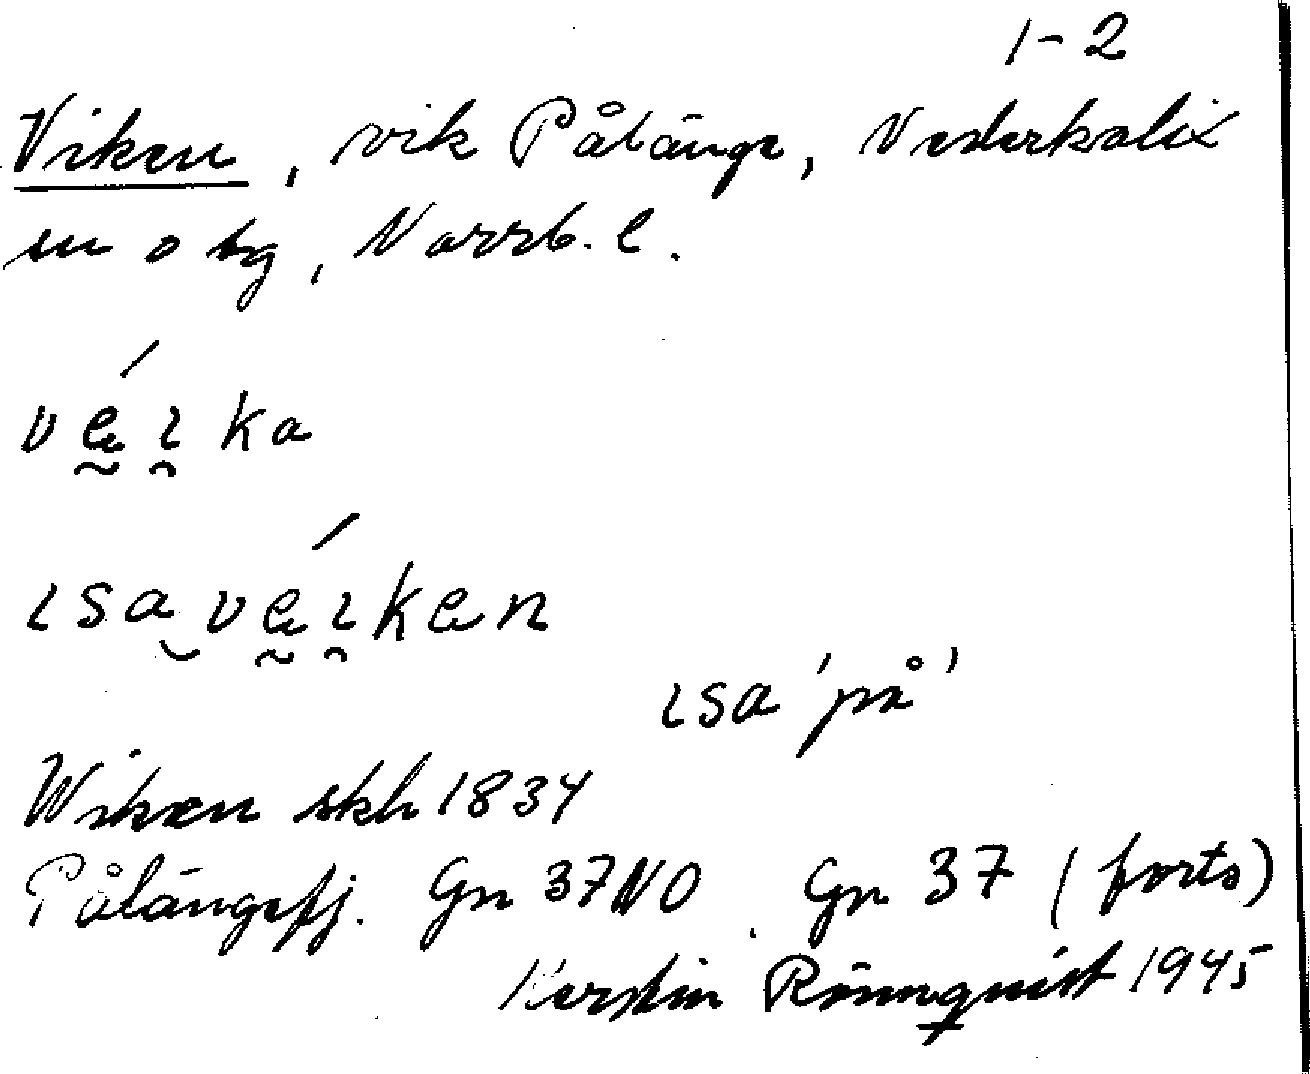 1-2
Viken, vik Pålänge, Nederkalix
sn o tg, Norrb. l.
véı̯ka
ısa‿véı̯ken
ısa 'på'
Wiken skh 1834
Pålängefj. Gn 37NO. Gn 37 (forts)
Kerstin Rönnquist 1945